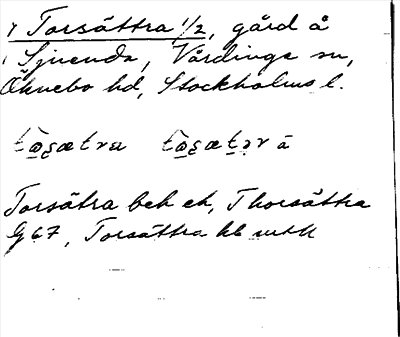 Torsättra 1/2, gård å
Sjuenda, Vårdinge sn,
Öknebo hd, Stockholms l.
Torsätra bek ek, Thorsättra
G 67, Torsättra kb mtll